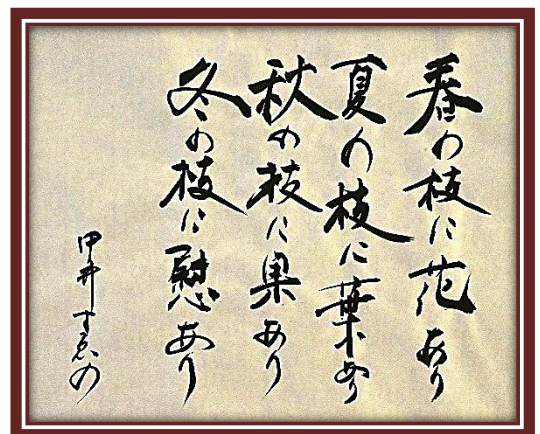 春の枝に花あり
夏の枝に葉あり
秋の枝に果あり
冬の枝に慰あり
中井すゑの